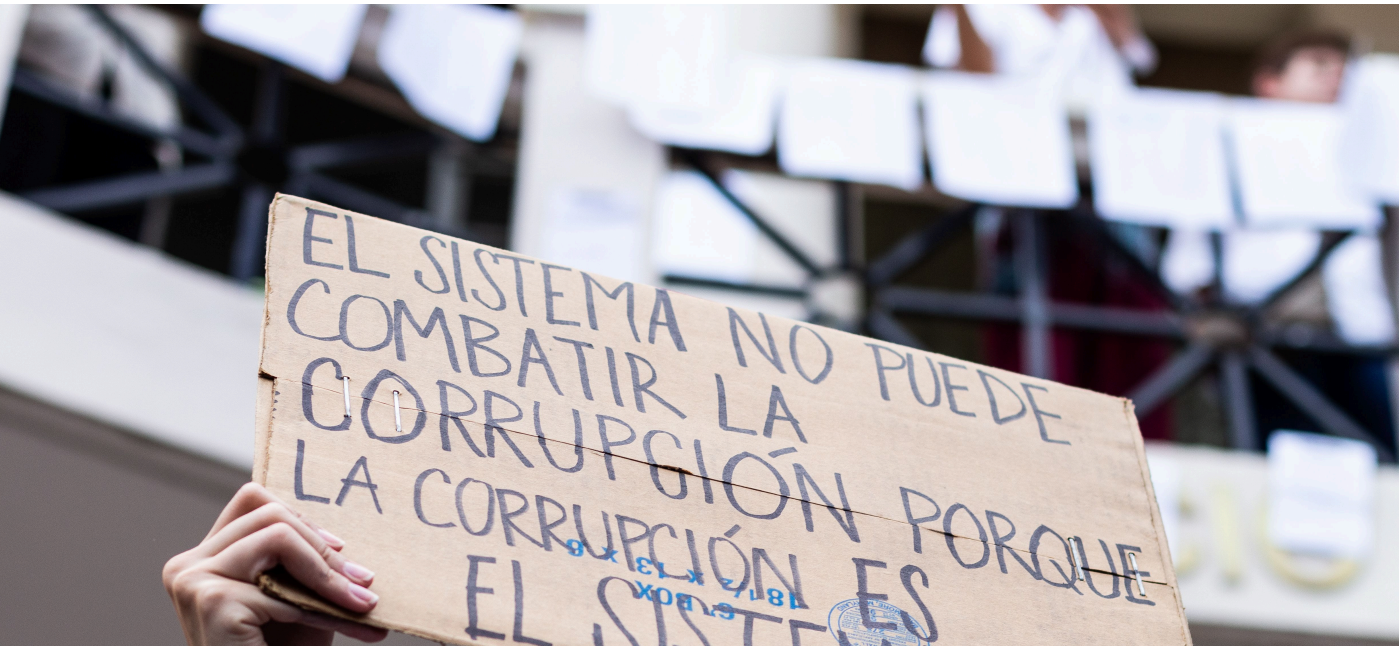 EL SISTEMA NO PUEDE
COMBATIR LA
CORRUPCIÓN PORQUE
LA CORRUPCIÓN ES
EL SISTE
18 1/2 x 13 x 6
BOX